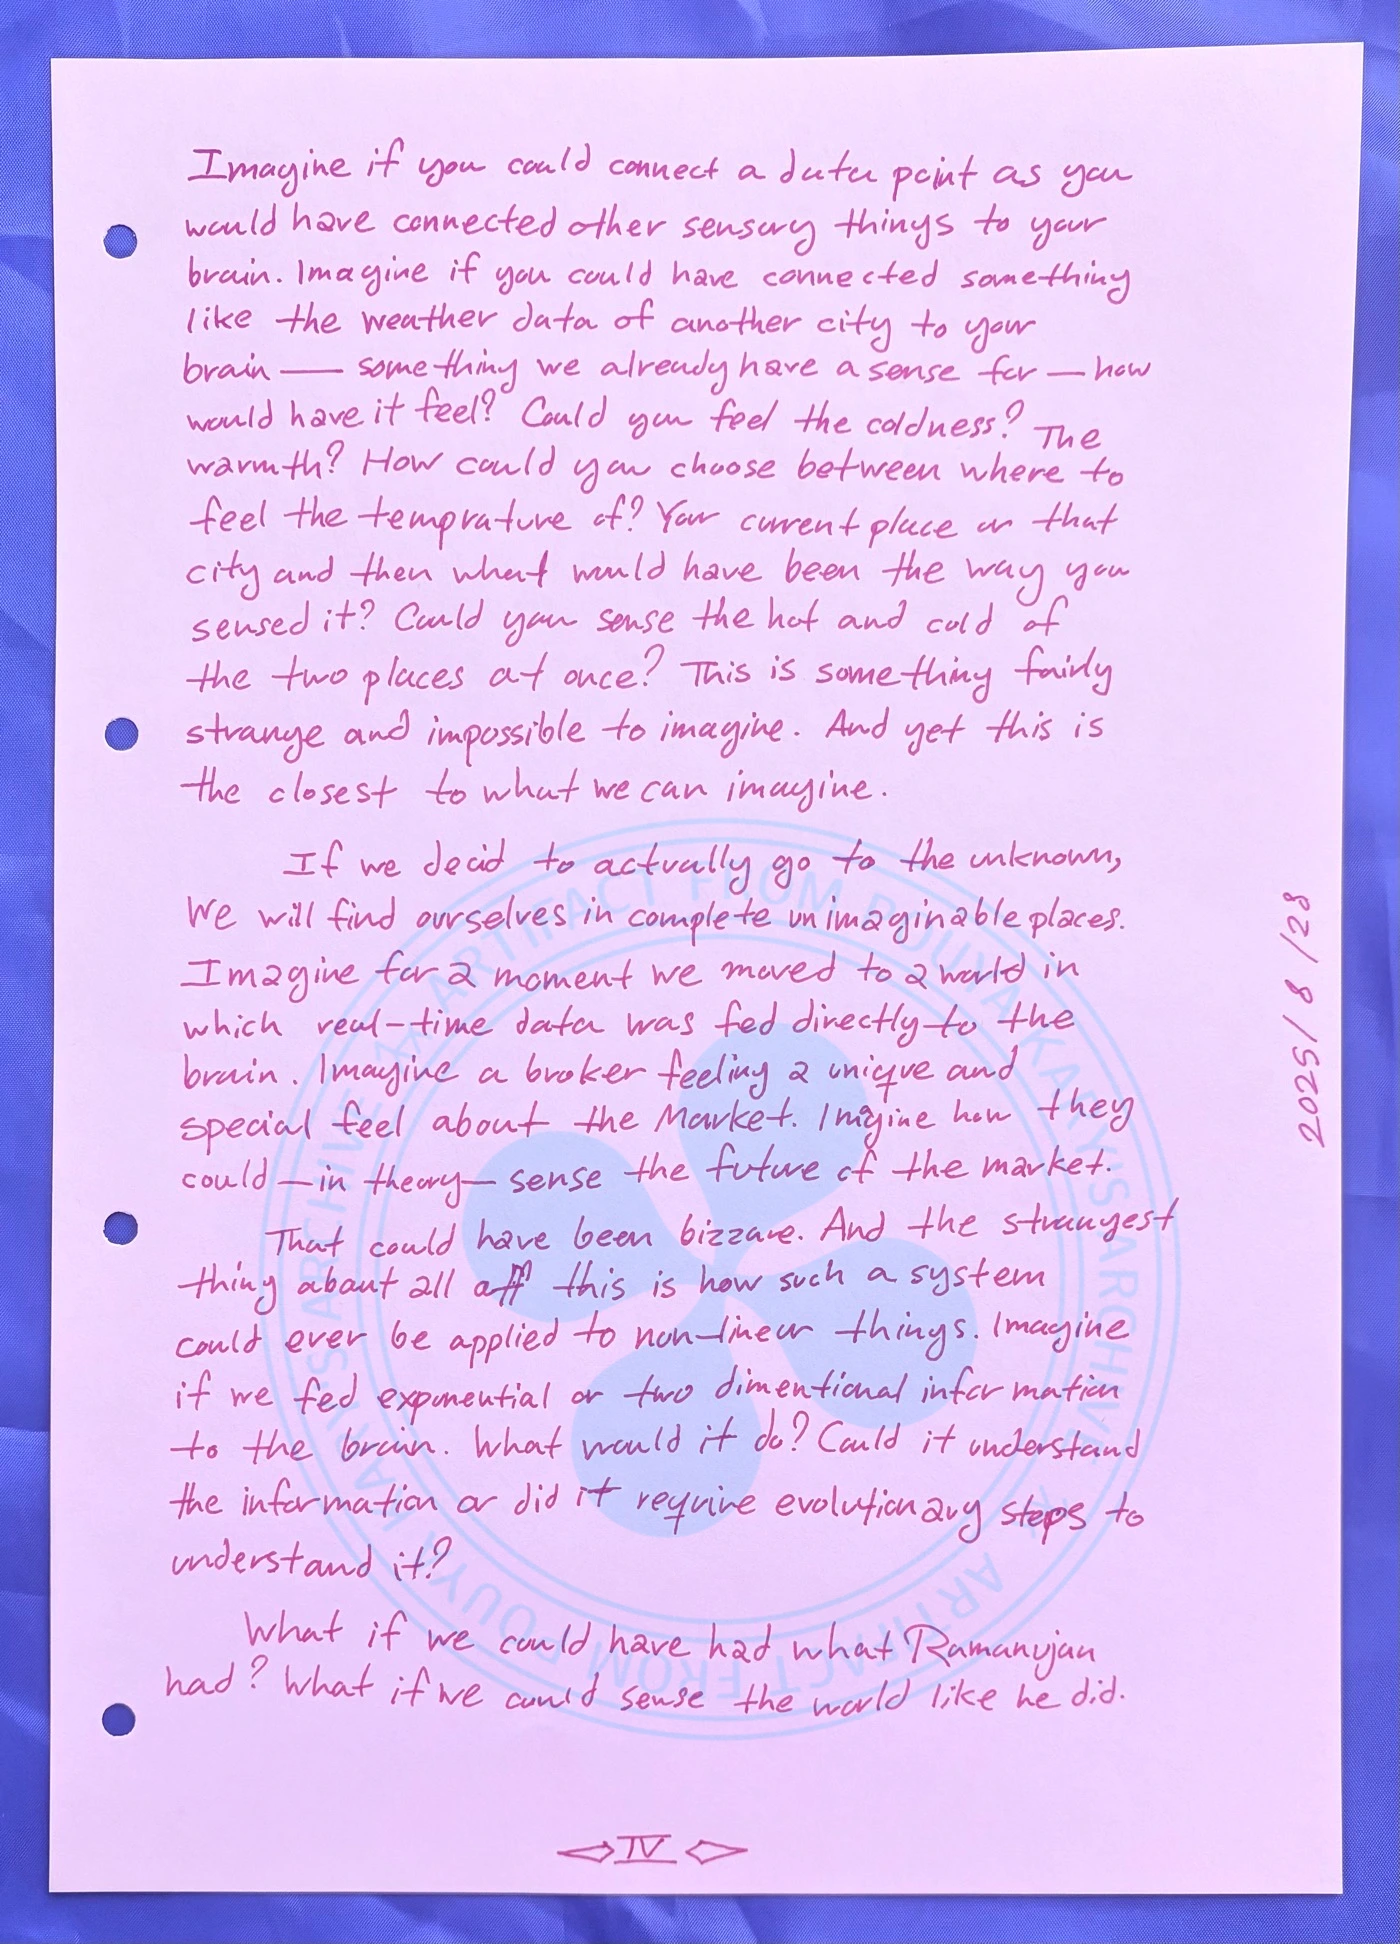 Imagine if you could connect a data point as you
would have connected other sensory things to your
brain. Imagine if you could have connected something
like the weather data of another city to your
brain — something we already have a sense for — how
would have it feel? Could you feel the coldness? The
warmth? How could you choose between where to
feel the temprature of? Your current place or that
city and then what would have been the way you
sensed it? Could you sense the hot and cold of
the two places at once? This is something fairly
strange and impossible to imagine. And yet this is
the closest to what we can imagine.
If we decid to actually go to the unknown,
We will find ourselves in complete unimaginable places.
Imagine for a moment we moved to a world in
which real-time data was fed directly to the
brain. Imagine a broker feeling a unique and
special feel about the Market. Imagine how they
could — in theory — sense the future of the market.
That could have been bizzare. And the strangest
thing about all off this is how such a system
could ever be applied to non-linear things. Imagine
if we fed exponential or two dimentional information
to the brain. What would it do? Could it understand
the information or did it require evolutionary steps to
understand it?
What if we could have had what Ramanujan
had? What if we could sense the world like he did.
IV
2025/8/28
ARTIFACT FROM POUYA KAYI'S ARCHIVE
ARTIFACT FROM POUYA KAYI'S ARCHIVE